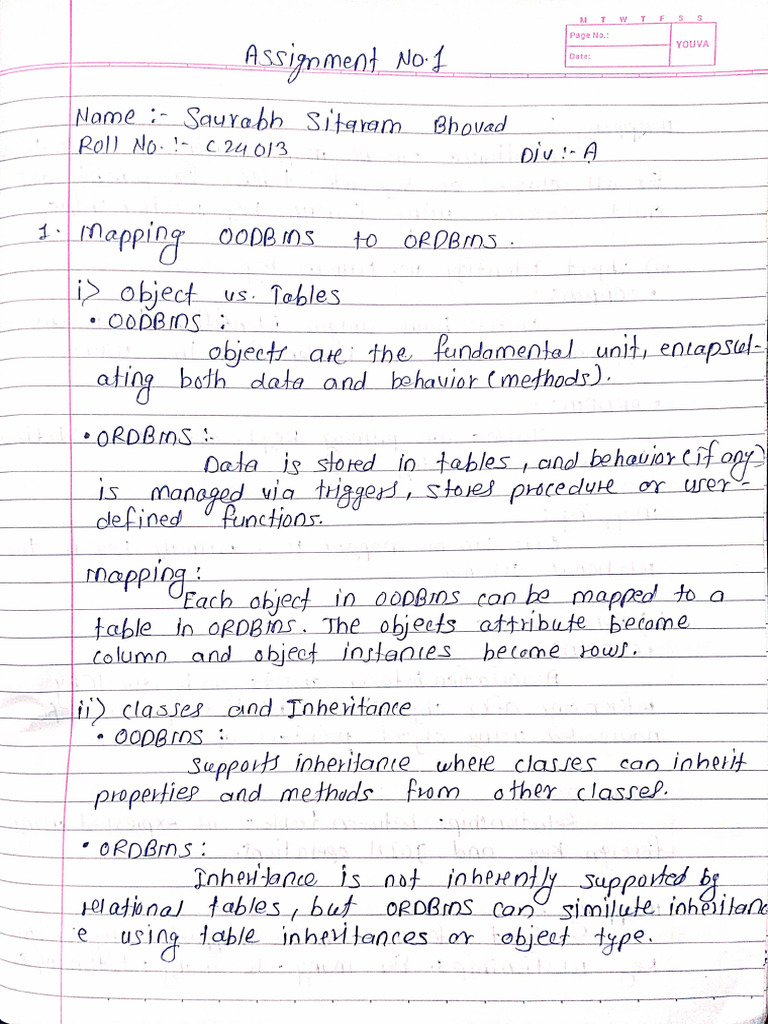 M T W T F S S
Page No.:
YOUVA
Date:
Assignment No.1
Name :- Saurabh Sitaram Bhovad
Roll No. :- C24013 Div :- A
1. Mapping OODBMS to ORDBMS.
i) Object vs. Tables
• OODBMS :
objects are the fundamental unit, encapsul-
ating both data and behavior (methods).
• ORDBMS :-
Data is stored in tables, and behavior (if any)
is managed via triggers, stores procedure or user-
defined functions.
Mapping :
Each object in OODBMS can be mapped to a
table in ORDBMS. The objects attribute become
column and object instances become rows.
ii) Classes and Inheritance
• OODBMS :
Supports inheritance where classes can inherit
properties and methods from other classes.
• ORDBMS :
Inheritance is not inherently supported by
relational tables, but ORDBMS can similute inheritanc
e using table inheritances or object type.